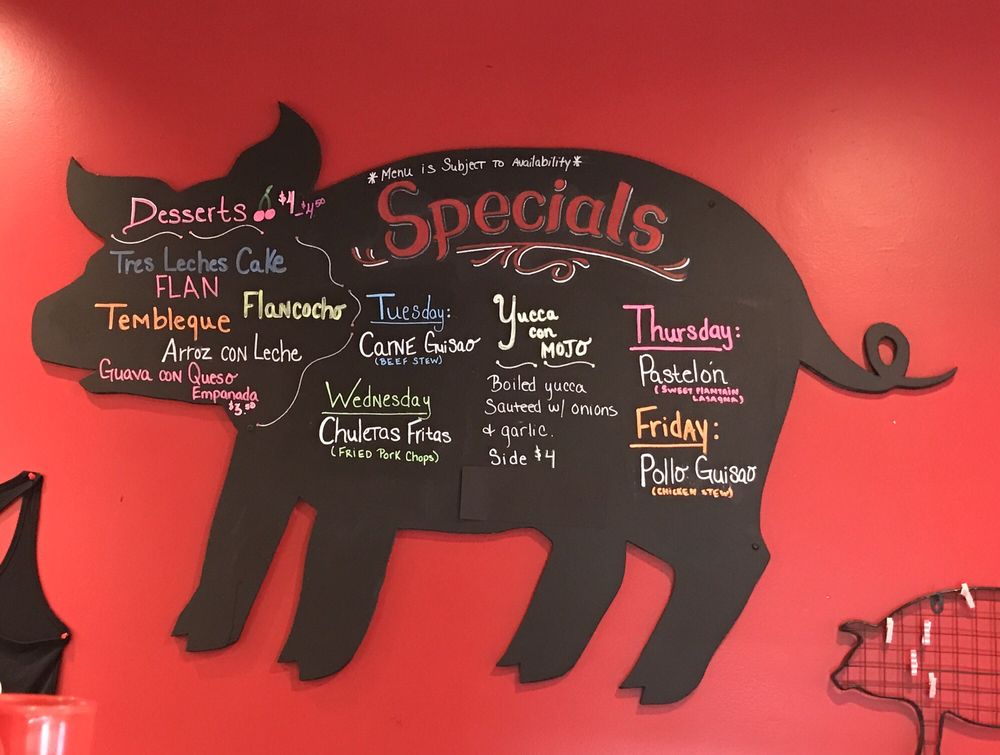 *Menu is Subject to Availability*
Specials
Desserts $4-$4.50
Tres Leches Cake
FLAN
Flancocho
Tembleque
Arroz con Leche
Guava con Queso
Empanada
$3.50
Tuesday:
Carne Guisao
(BEEF STEW)
Wednesday
Chuletas Fritas
(FRIED PORK CHOPS)
Yucca
con
MOJO
Boiled yucca
Sauteed w/ onions
& garlic.
Side $4
Thursday:
Pastelón
(SWEET PLANTAIN
LASAGNA)
Friday:
Pollo Guisao
(CHICKEN STEW)